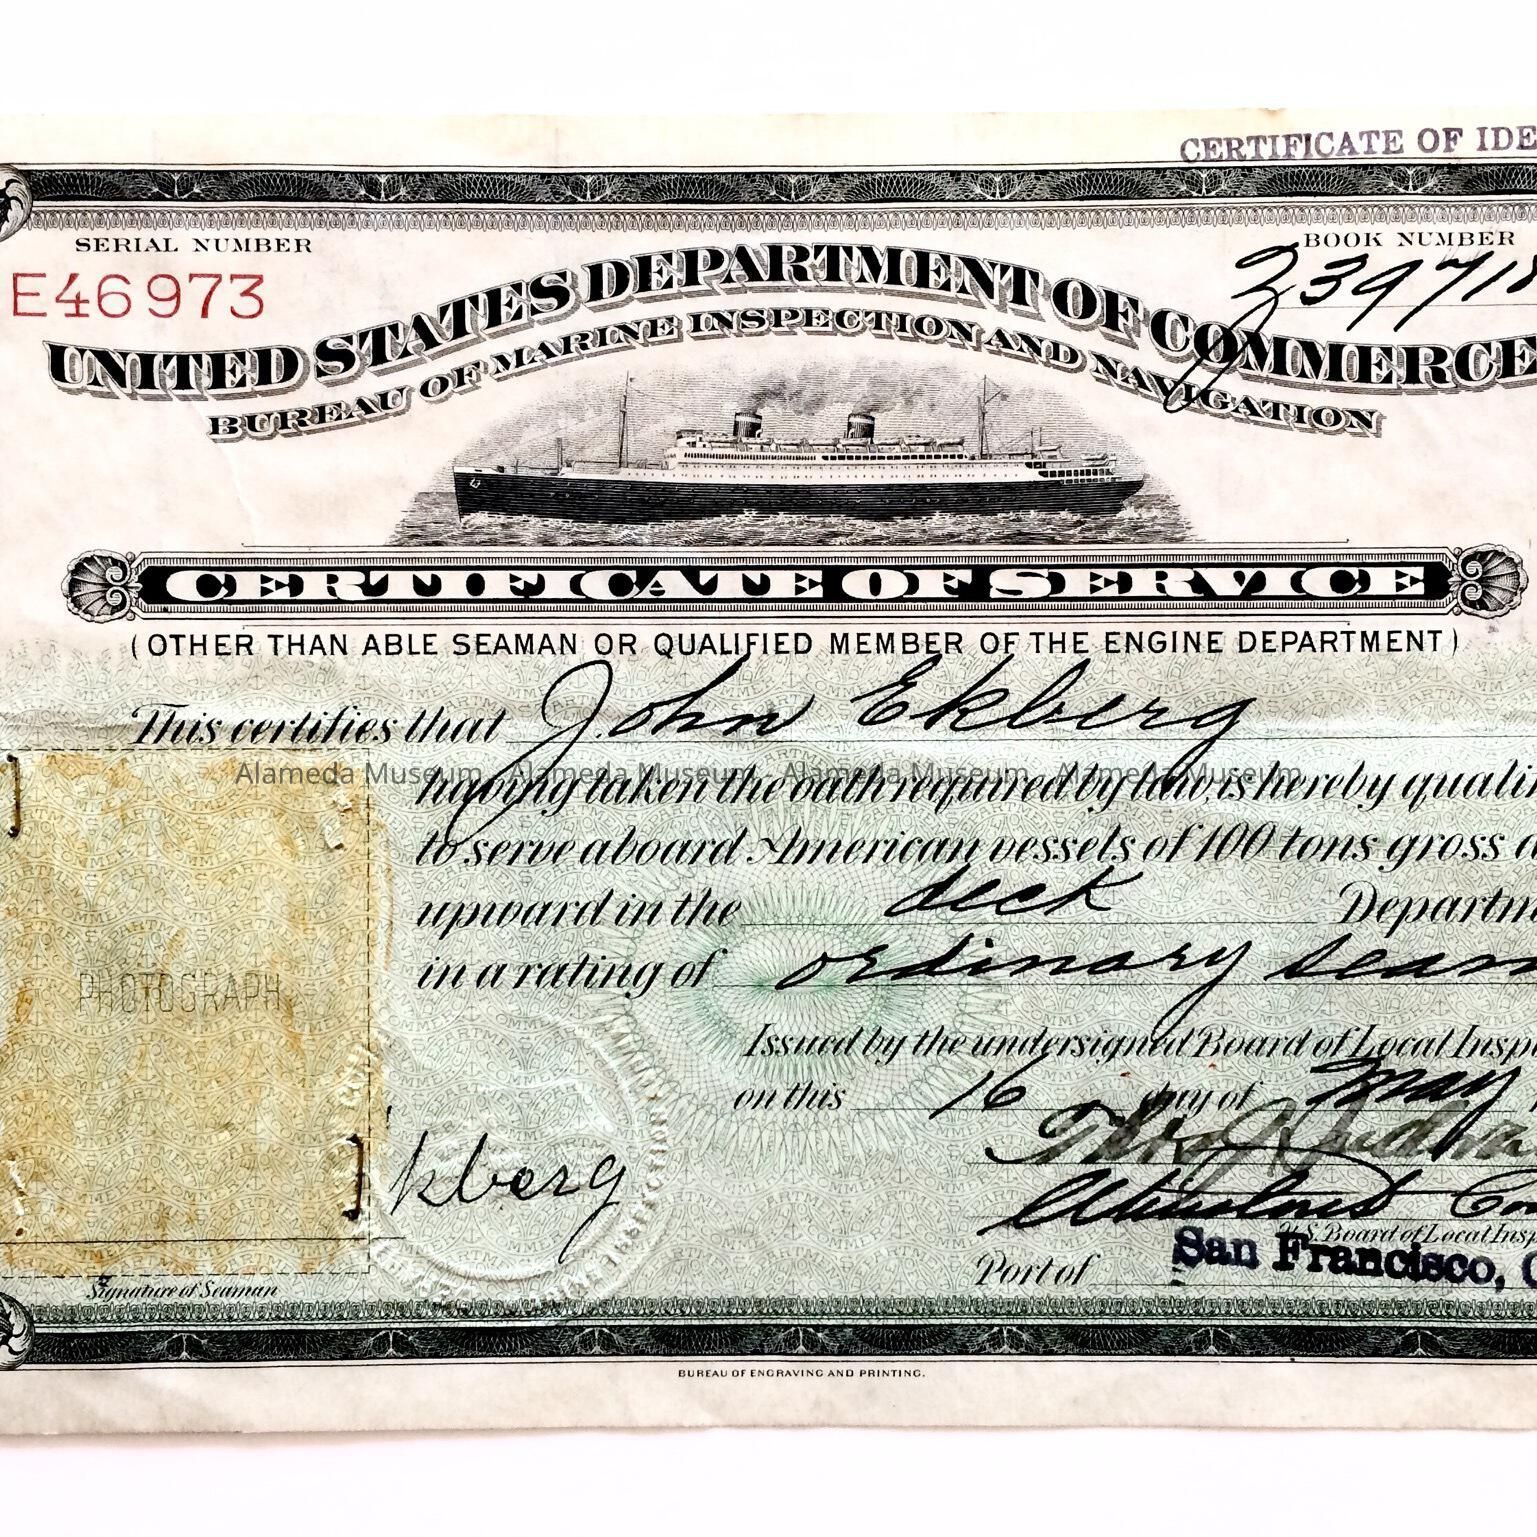 CERTIFICATE OF IDE
SERIAL NUMBER
BOOK NUMBER
E46973
239718
UNITED STATES DEPARTMENT OF COMMERCE
BUREAU OF MARINE INSPECTION AND NAVIGATION
CERTIFICATE OF SERVICE
(OTHER THAN ABLE SEAMAN OR QUALIFIED MEMBER OF THE ENGINE DEPARTMENT)
This certifies that John Ekberg
Alameda Museum - Alameda Museum - Alameda Museum - Alameda Museum
having taken the oath required by law, is hereby quali
to serve aboard American vessels of 100 tons gross a
upward in the deck Departm
in a rating of ordinary seam
PHOTOGRAPH
Issued by the undersigned Board of Local Insp
on this 16 day of May
kberg
U.S. Board of Local Insp
Port of San Francisco, C
Signature of Seaman
BUREAU OF ENGRAVING AND PRINTING.